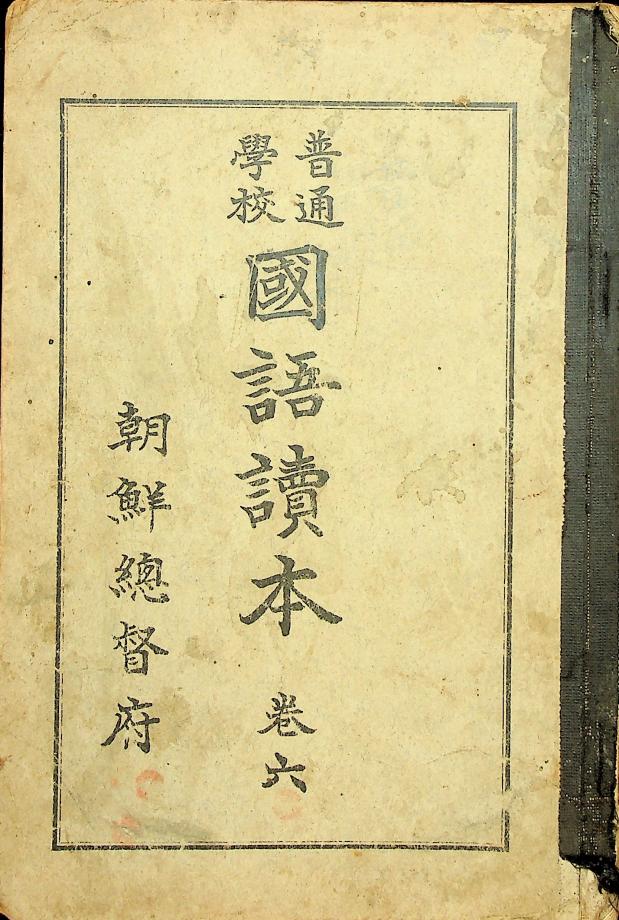 普通
學校
國語讀本 卷六
朝鮮總督府